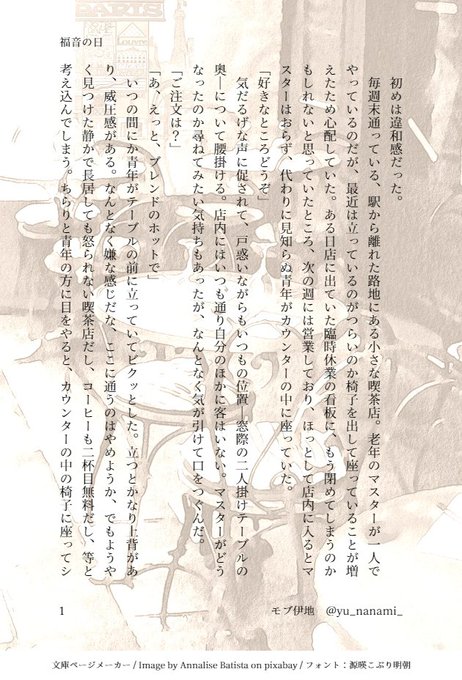 福音の日
初めは違和感だった。
毎週末通っている、駅から離れた路地にある小さな喫茶店。老年のマスターが一人で
やっているのだが、最近は立っているのがつらいのか椅子を出して座っていることが増
えたため心配していた。ある日店に出ていた臨時休業の看板に、もう閉めてしまうのか
もしれないと思っていたところ、次の週には営業しており、ほっとして店内に入るとマ
スターはおらず、代わりに見知らぬ青年がカウンターの中に座っていた。
「好きなところどうぞ」
気だるげな声に促されて、戸惑いながらもいつもの位置―窓際の二人掛けテーブルの
奥―について腰掛ける。店内にはいつも通り自分のほかに客はいない。マスターがどう
なったのか尋ねてみたい気持ちもあったが、なんとなく気が引けて口をつぐんだ。
「ご注文は？」
「あ、えっと、ブレンドのホットで」
いつの間にか青年がテーブルの前に立っていてビクッとした。立つとかなり上背があ
り、威圧感がある。なんとなく嫌な感じだな、ここに通うのはやめようか、でもようや
く見つけた静かで長居しても怒られない喫茶店だし、コーヒーも二杯目無料だし、等と
考え込んでしまう。ちらりと青年の方に目をやると、カウンターの中の椅子に座ってシ
1
モブ伊地　@yu_nanami_
文庫ページメーカー / Image by Annalise Batista on pixabay / フォント：源暎こぶり明朝
PARIS
Louvre